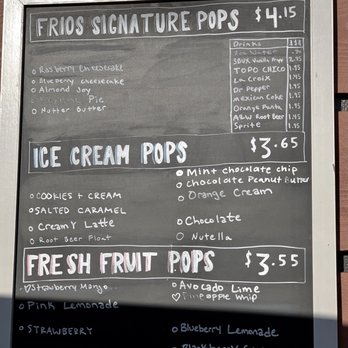 FRIOS SIGNATURE POPS $4.15
Drinks
SBUX Vanilla Frapp 2.95
TOPO CHICO 1.95
La Croix 1.45
Dr Pepper 1.95
Mexican Coke 1.95
Orange Fanta 1.95
A&W Root Beer 1.95
Sprite 1.95
o Raspberry Cheesecake
o Blueberry Cheesecake
o Almond Joy
Pie
o Nutter Butter
ICE CREAM POPS $3.65
o COOKIES + CREAM
o SALTED CARAMEL
o Creamy Latte
o Root Beer Float
Mint chocolate chip
o Chocolate Peanut Butter
o Orange Cream
o Chocolate
o Nutella
FRESH FRUIT POPS $3.55
♡ Strawberry Mango
o Pink Lemonade
o STRAWBERRY
o Avocado Lime
♡ Pineapple Whip
o Blueberry Lemonade